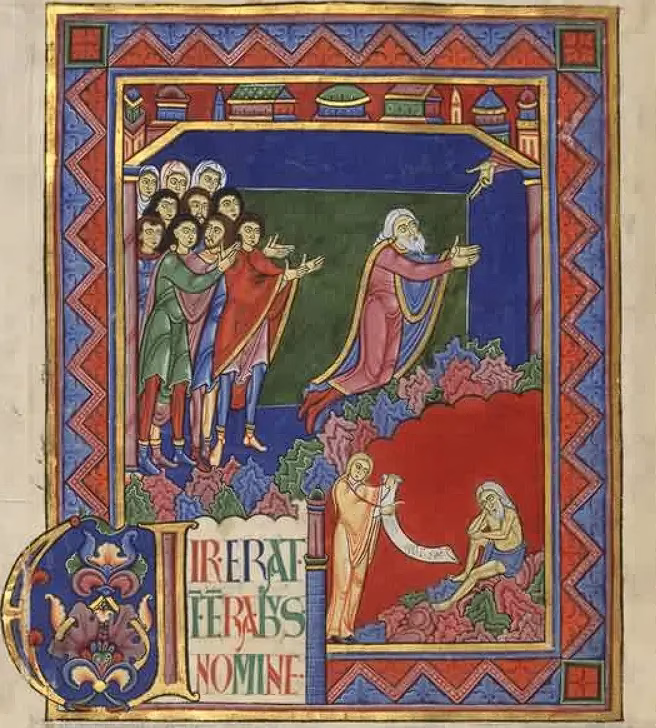 UIR·ERAT·
ĪTERRAhUS
NOMINE·